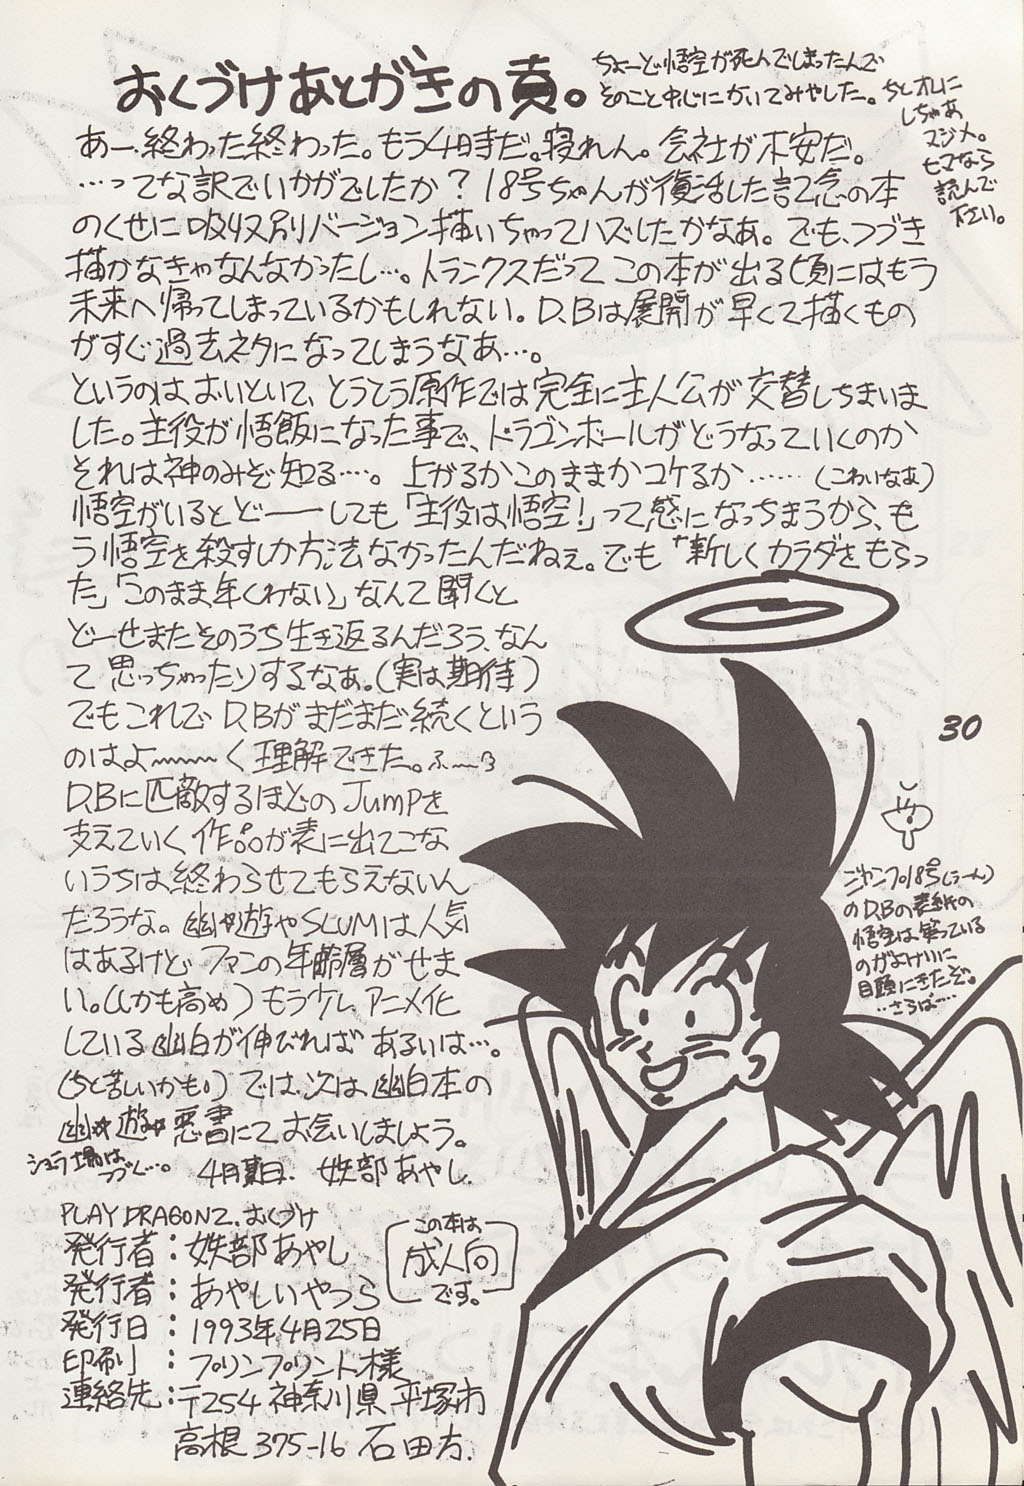 おくづけあとがきの頁。
ちょーど悟空が死んでしまったんで
そのこと中心にかいてみやした。
ちとオレに
しちゃあ
マジメ。
ヒマなら
読んで
下さい。
あー、終わった終わった。もう4時だ。寝れん。会社が不安だ。
…ってな訳でいかがでしたか？18号ちゃんが復活した記念の本
のくせに吸収別バージョン描いちゃってハズしたかなあ。でも、つづき
描かなきゃなんなかったし…。トランクスだってこの本が出る頃にはもう
未来へ帰ってしまっているかもしれない。D.Bは展開が早くて描くもの
がすぐ過去ネタになってしまうなあ…。
というのはおいといて、とうとう原作では完全に主人公が交替しちまいま
した。主役が悟飯になった事で、ドラゴンボールがどうなっていくのか
それは神のみぞ知る…。上がるかこのままかコケるか……（こわいなあ）
悟空がいるとどーーしても「主役は悟空！」って感じになっちまうから、も
う悟空を殺すしか方法なかったんだねぇ。でも「新しくカラダをもらっ
た」「このまま年くわない」なんて聞くと
どーせまたそのうち生き返るんだろう、なん
て思っちゃったりするなぁ。（実は期待）
でもこれでD.Bがまだまだ続くという
のはよ～～～く理解できた。ふーっ
D.Bに匹敵するほどのJUMPを
支えていく作品が表に出てこな
いうちは終わらせてもらえないん
だろうな。幽☆遊やSLUMは人気
はあるけどファンの年齢層がせま
い。（しかも高め）もう少し、アニメ化
している幽白が伸びればあるいは…。
（ちと苦しいかも。）では、次は幽白本の
幽☆遊☆悪書にてお会いしましょう。
シュラ場は
つづく…。
4月 日. 妖部あやし.
30
ジャンプ18号（うーん）
のD.Bの表紙の
悟空は笑っている
のがよけいに
目頭にきたぞ。
…さらば…
PLAY DRAGON2. おくづけ
発行者：妖部あやし
発行者：あやしいやつら
発行日：1993年4月25日
印刷：プリンプリント様
連絡先：〒254 神奈川県平塚市
高根375-16 石田方.
この本は
成人向
です。